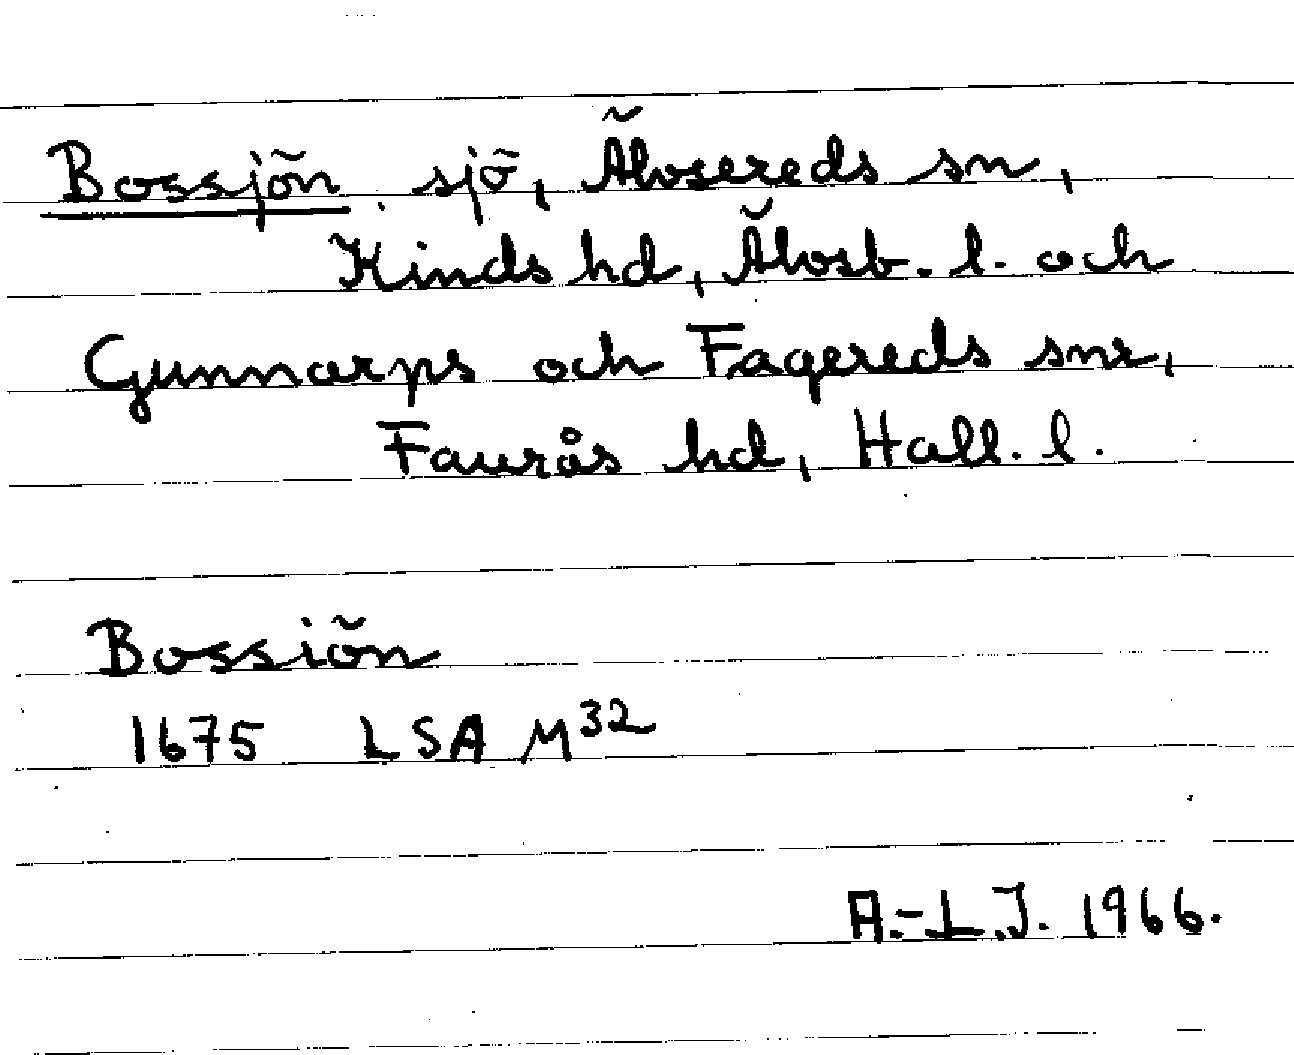 Bossjön sjö, Älvsereds sn,
Kinds hd, Älvsb. l. och
Gunnarps och Fagereds snr,
Faurås hd, Hall. l.
Bossiön
1675 LSA M32
A.-L.J. 1966.